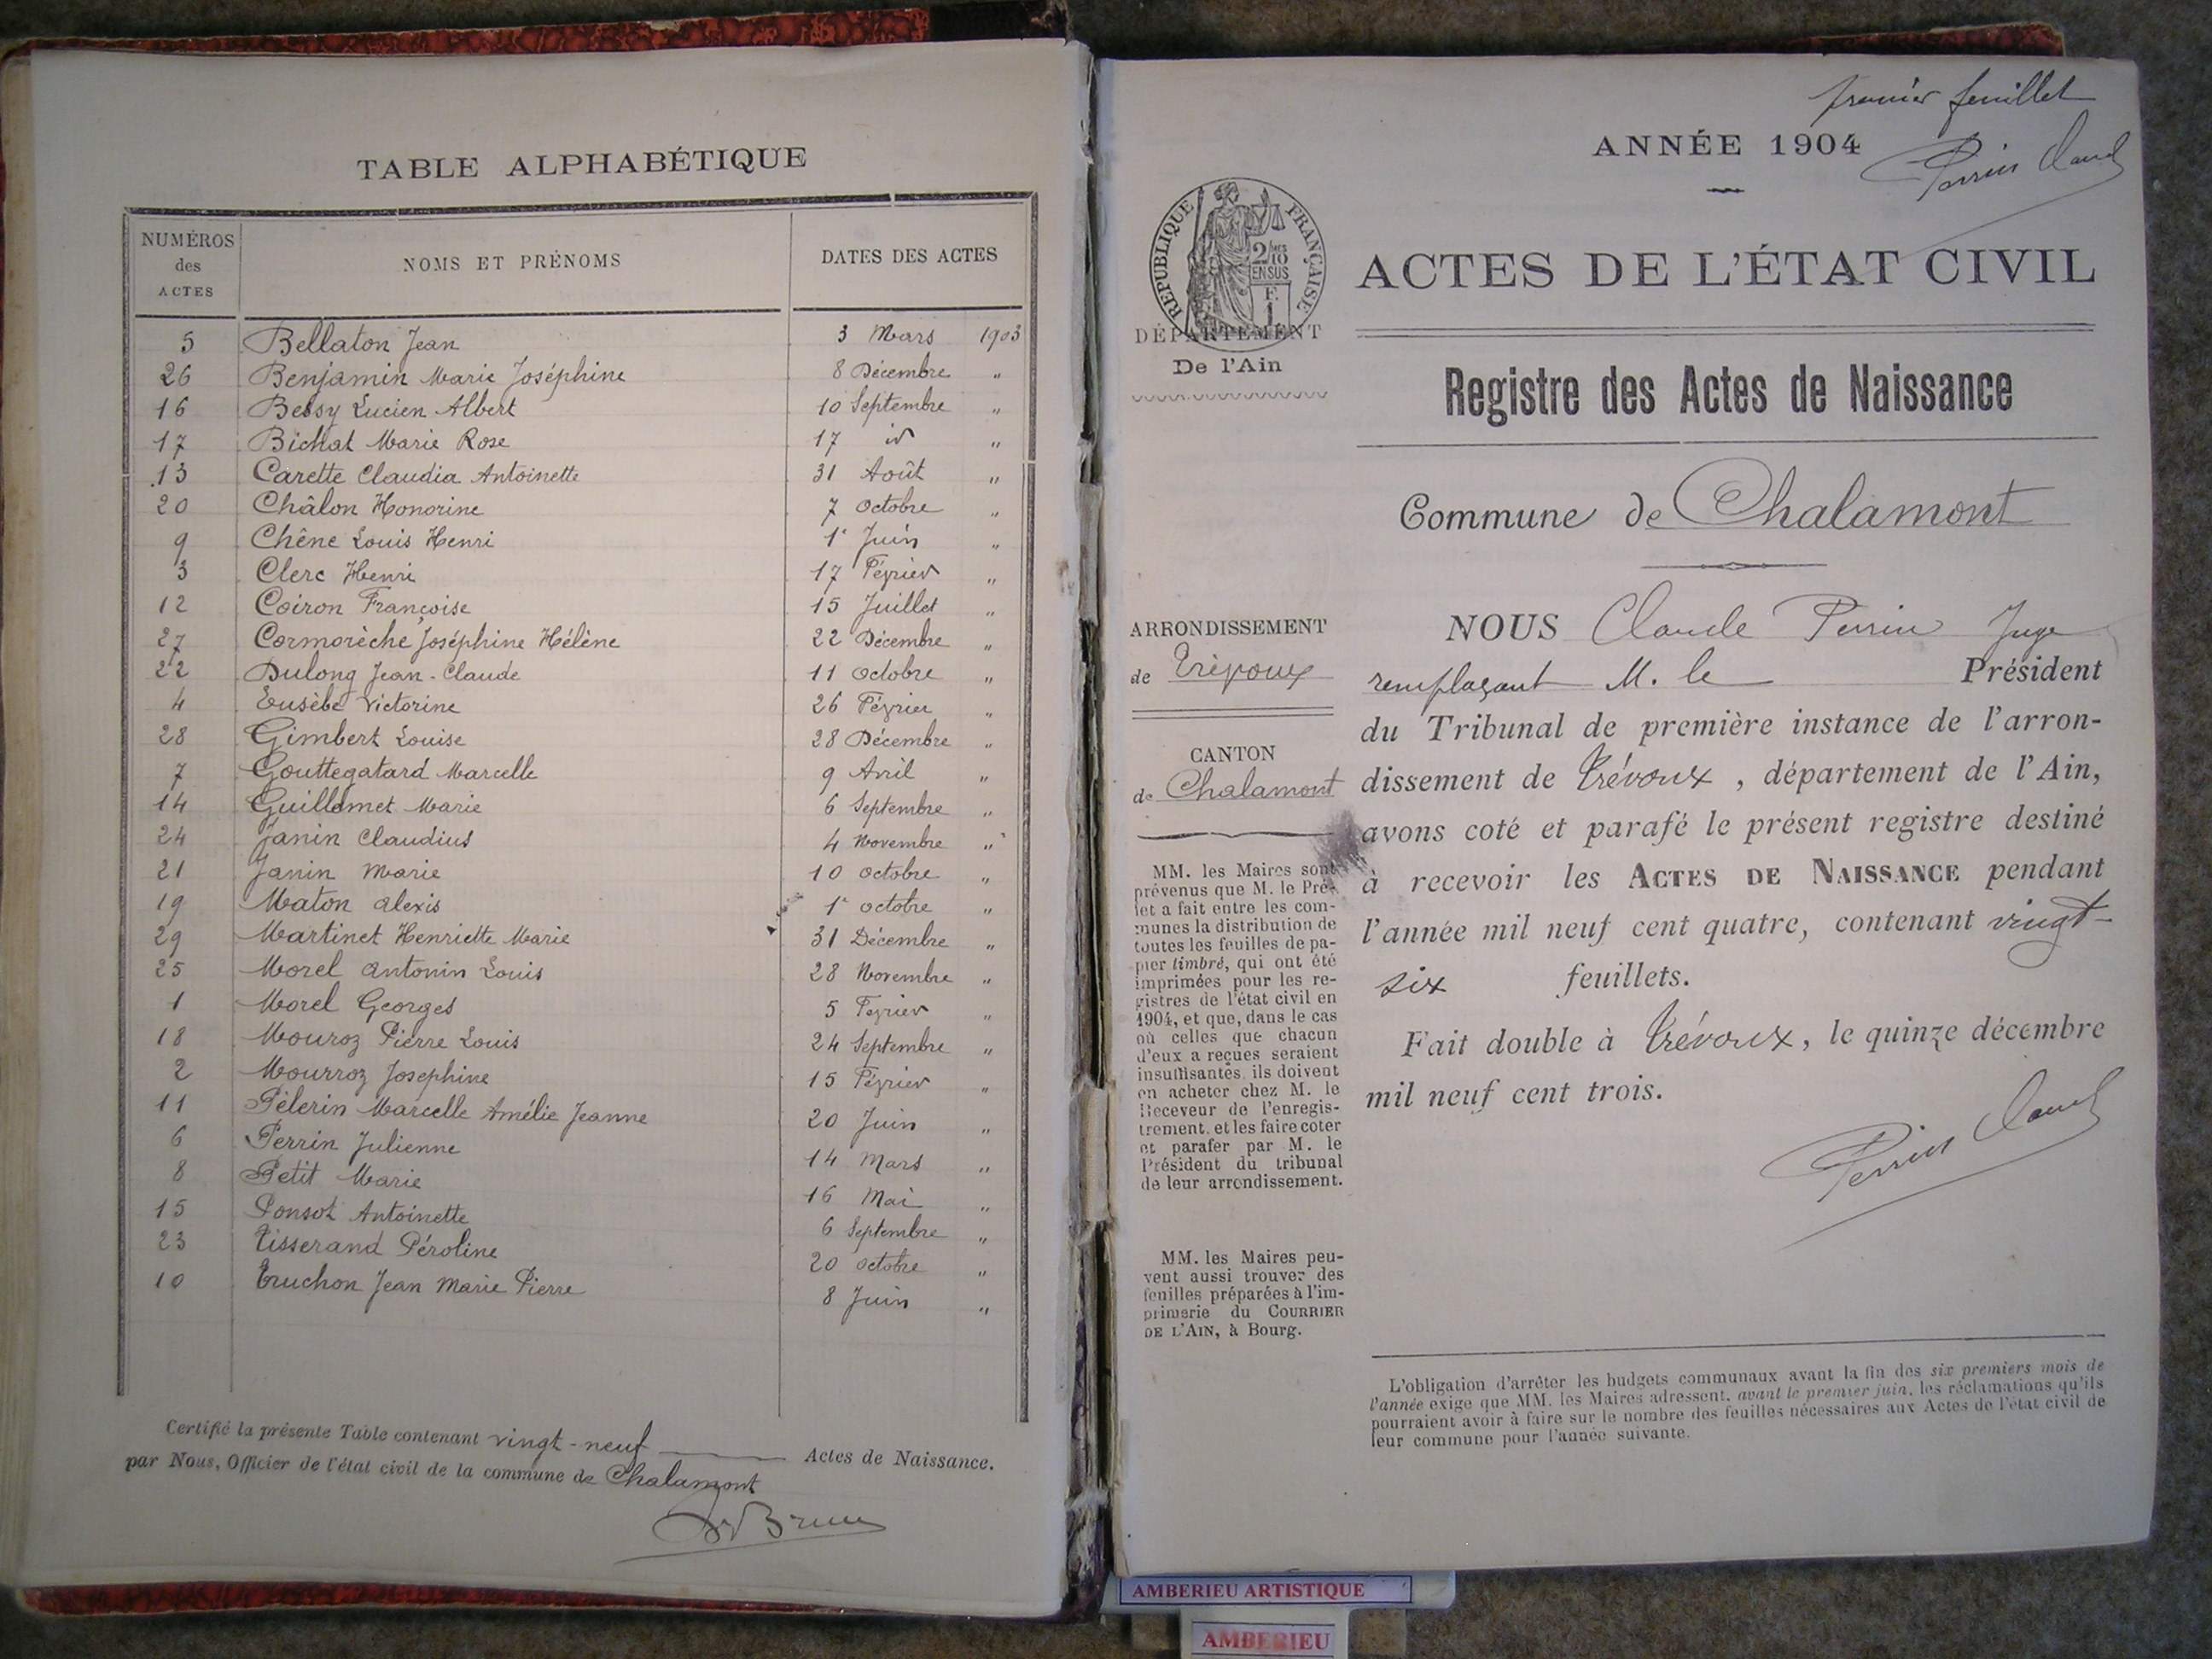 TABLE ALPHABÉTIQUE
NUMÉROS des ACTES NOMS ET PRÉNOMS DATES DES ACTES
5 Bellaton Jean 3 Mars 1903
26 Benjamin Marie Joséphine 8 Décembre "
16 Bessy Lucien Albert 10 Septembre "
17 Bichat Marie Rose 17 id "
13 Carette Claudia Antoinette 31 Août "
20 Châlon Honorine 7 Octobre "
9 Chêne Louis Henri 1er Juin "
3 Clerc Henri 17 Février "
12 Coiron Françoise 15 Juillet "
27 Cormorèche Joséphine Hélène 22 Décembre "
22 Dulong Jean-Claude 11 Octobre "
4 Eusèbe Victorine 26 Février "
28 Gimbert Louise 28 Décembre "
7 Gouttegatard Marcelle 9 Avril "
14 Guillomet Marie 6 Septembre "
24 Janin Claudius 4 Novembre "
21 Janin Marie 10 Octobre "
19 Maton Alexis 1er Octobre "
29 Martinet Henriette Marie 31 Décembre "
25 Morel Antonin Louis 28 Novembre "
1 Morel Georges 5 Février "
18 Mouroz Pierre Louis 24 Septembre "
2 Mourroz Josephine 15 Février "
11 Pèlerin Marcelle Amélie Jeanne 20 Juin "
6 Perrin Julienne 14 Mars "
8 Petit Marie 16 Mai "
15 Ponsot Antoinette 6 Septembre "
23 Tisserand Péroline 20 Octobre "
10 Truchon Jean Marie Pierre 8 Juin "
Certifié la présente Table contenant vingt-neuf Actes de Naissance.
par Nous, Officier de l'état civil de la commune de Chalamont
premier feuillet
ANNÉE 1904
Perrin Claude
RÉPUBLIQUE FRANÇAISE
2/10
EN SUS
F.
1
ACTES DE L'ÉTAT CIVIL
DÉPARTEMENT
De l'Ain
Registre des Actes de Naissance
Commune de Chalamont
ARRONDISSEMENT
de Trévoux
CANTON
de Chalamont
MM. les Maires sont
prévenus que M. le Pré-
fet a fait entre les com-
munes la distribution de
toutes les feuilles de pa-
pier timbré, qui ont été
imprimées pour les re-
gistres de l'état civil en
1904, et que, dans le cas
où celles que chacun
d'eux a reçues seraient
insuffisantes, ils doivent
en acheter chez M. le
Receveur de l'enregis-
trement, et les faire coter
et parafer par M. le
Président du tribunal
de leur arrondissement.
MM. les Maires peu-
vent aussi trouver des
feuilles préparées à l'im-
primerie du COURRIER
DE L'AIN, à Bourg.
NOUS Claude Perrin Juge
remplaçant M. le Président
du Tribunal de première instance de l'arron-
dissement de Trévoux, département de l'Ain,
avons coté et parafé le présent registre destiné
à recevoir les ACTES DE NAISSANCE pendant
l'année mil neuf cent quatre, contenant vingt-
six feuillets.
Fait double à Trévoux, le quinze décembre
mil neuf cent trois.
Perrin Claude
L'obligation d'arrêter les budgets communaux avant la fin des six premiers mois de
l'année exige que MM. les Maires adressent, avant le premier juin, les réclamations qu'ils
pourraient avoir à faire sur le nombre des feuilles nécessaires aux Actes de l'état civil de
leur commune pour l'année suivante.
AMBERIEU ARTISTIQUE
AMBERIEU